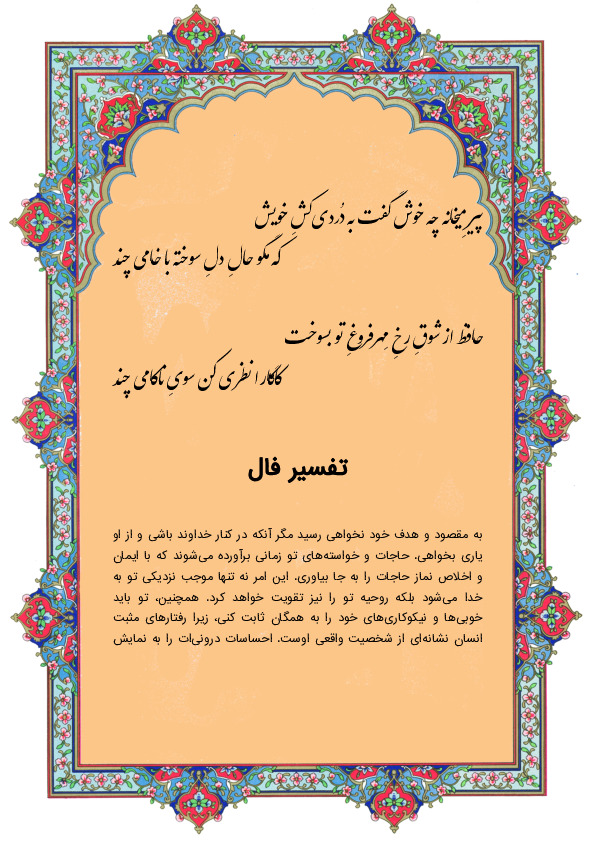 پیرِ میخانه چه خوش گفت به دُردی کَشِ خویش
که مگو حالِ دلِ سوخته با خامی چند
حافظ از شوقِ رخِ مِهرفروغِ تو بسوخت
کامکارا نظری کن سویِ ناکامی چند
تفسیر فال
به مقصود و هدف خود نخواهی رسید مگر آنکه در کنار خداوند باشی و از او
یاری بخواهی. حاجات و خواسته‌های تو زمانی برآورده می‌شوند که با ایمان
و اخلاص نماز حاجات را به جا بیاوری. این امر نه تنها موجب نزدیکی تو به
خدا می‌شود بلکه روحیه تو را نیز تقویت خواهد کرد. همچنین، تو باید
خوبی‌ها و نیکوکاری‌های خود را به همگان ثابت کنی، زیرا رفتارهای مثبت
انسان نشانه‌ای از شخصیت واقعی اوست. احساسات درونی‌ات را به نمایش